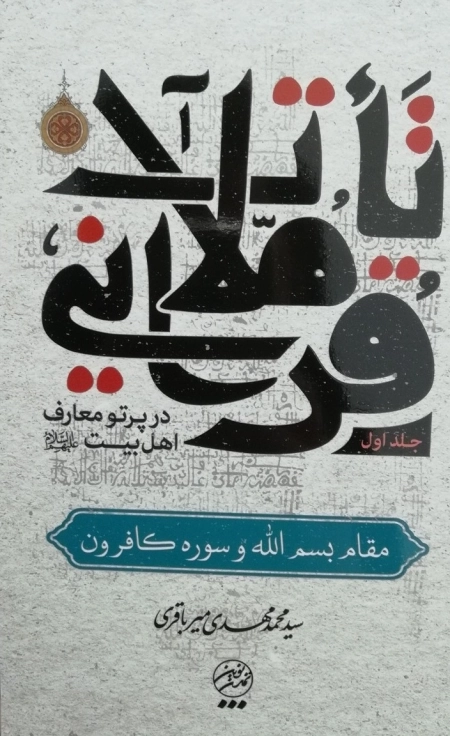 تأملات
قرآنی
جلد اول
در پرتو معارف
اهل بیت علیهم‌السلام
مقام بسم الله و سوره کافرون
سید محمد مهدی میرباقری
تمدن نوین